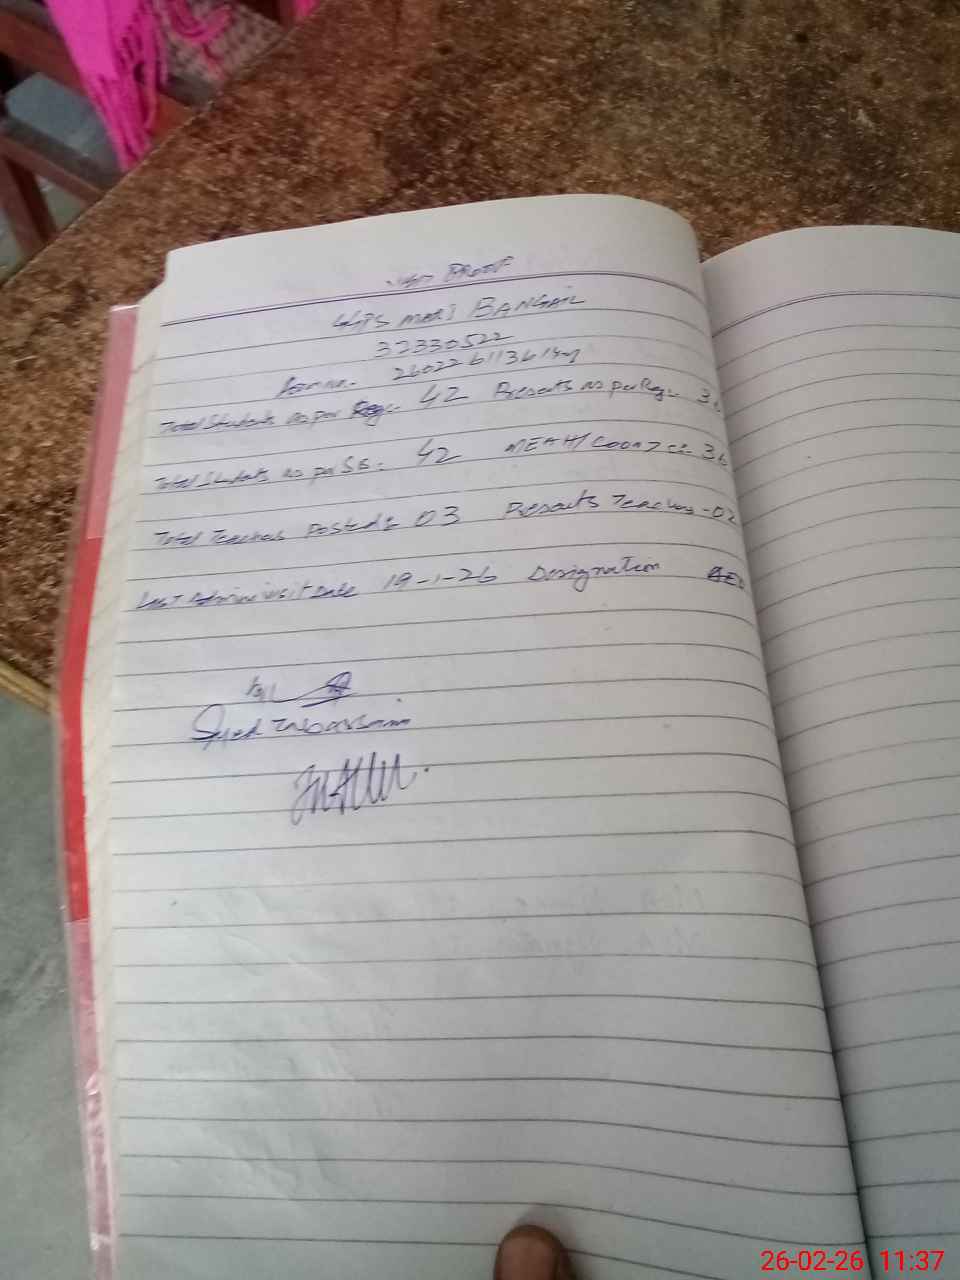 Visit PROOF
GGPS MARI BANGAIL
37330522
Form no. 26022611361
Total Students as per Reg:- 42 Presents as per Reg:- 36
Total Students as per SIS:- 42 MEAH/Count := 36
Total Teachers Posted:- 03 Presents Teachers -02
Last Admin visit Date 19-1-26 Designation AEO
Syed
26-02-26 11:37